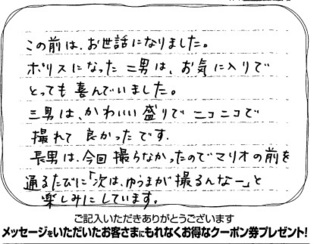 この前は、お世話になりました。
ポリスになった二男は、お気に入りで
とっても喜んでいました。
三男は、かわいい盛りでニコニコで
撮れて良かったです。
長男は、今回撮らなかったのでマリオの前を
通るたびに「次は、ゆうまが撮るんなー」と
楽しみにしています。
ご記入いただきありがとうございます
メッセージをいただいたお客さまにもれなくお得なクーポン券プレゼント!